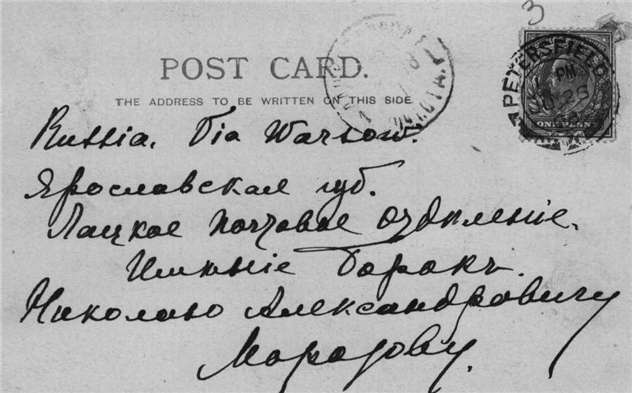 3
POST CARD.
THE ADDRESS TO BE WRITTEN ON THIS SIDE
PETERSFIELD
PM
ONE PENNY
Russia. Via Warsow.
Ярославская губ.
Лацкое почтовое отдѣленіе.
Имѣніе Борокъ.
Николаю Александровичу
Морозову.